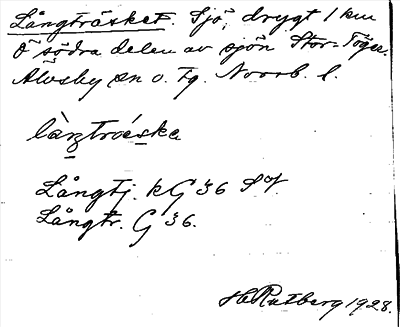 Långträsket. Sjö, drygt 1 km
Ö södra delen av sjön Stor-Tögen.
Älvsby sn o. tg. Norrb. l.
làŋtroéska
Långtj. kG 36 SV
Långtr. G 36.
H. Rutberg 1928.